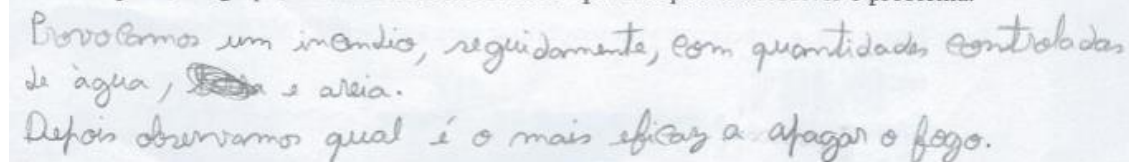 Provocamos um incêndio, seguidamente, com quantidades controladas
de àgua, e areia.
Depois observamos qual é o mais eficaz a apagar o fogo.